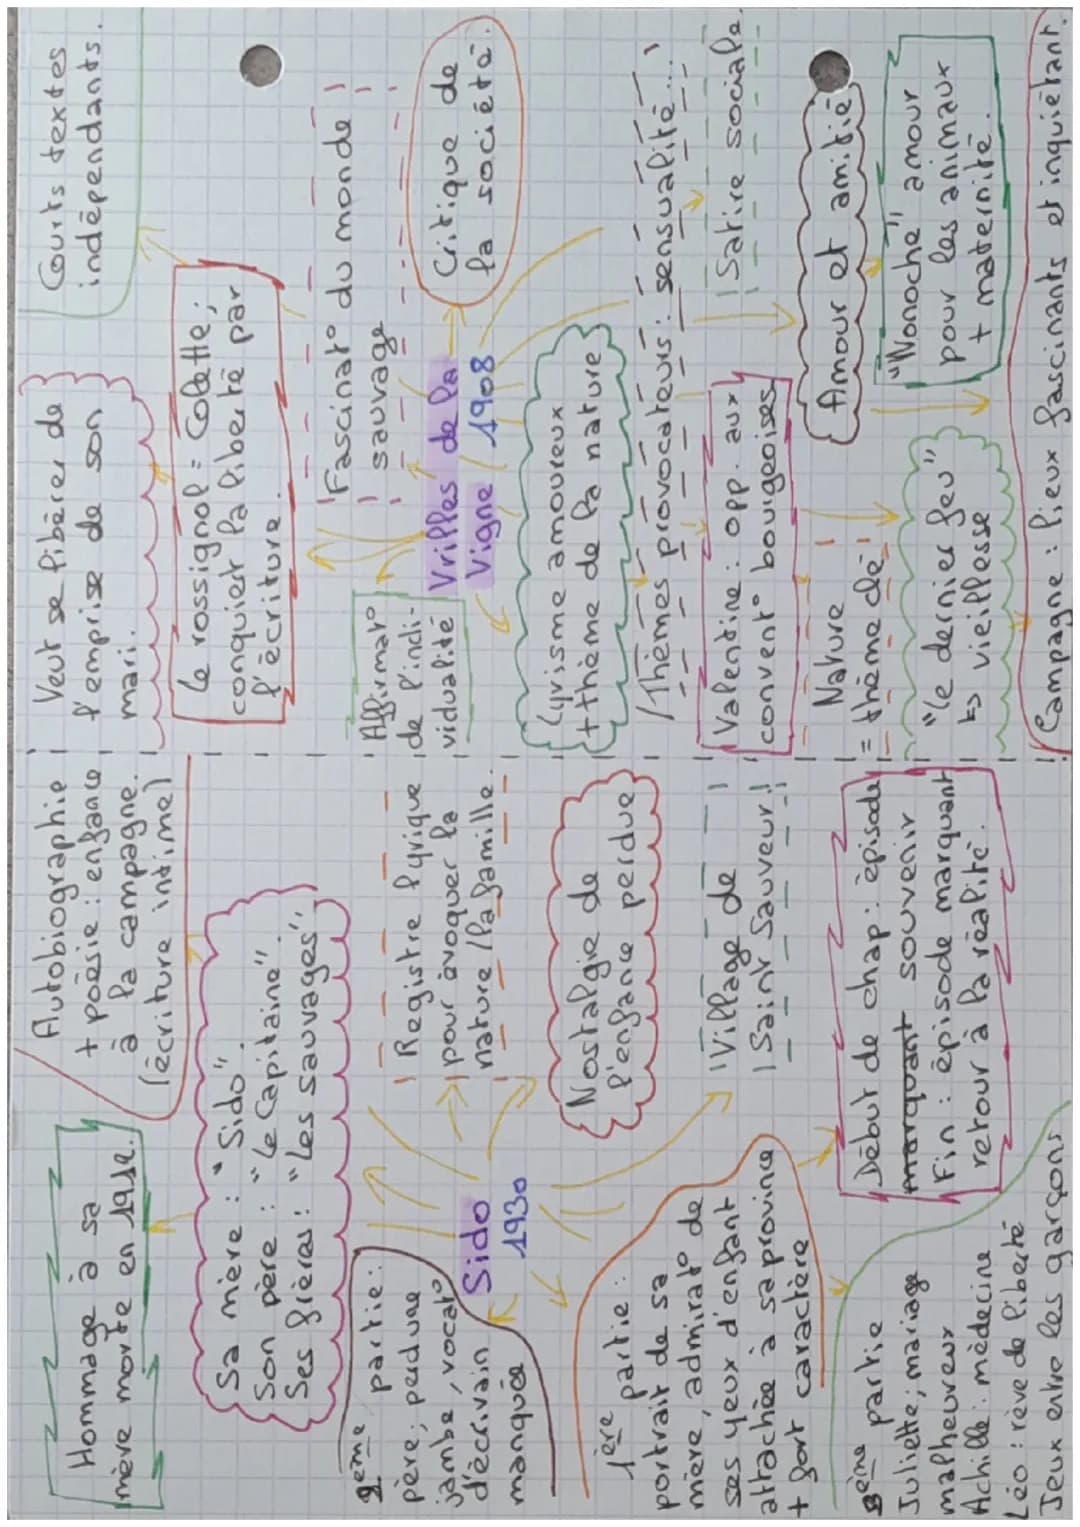 Hommage à sa
mère morte en 1912.
Autobiographie
+ poésie : enfance
à la campagne.
(écriture intime)
Sa mère : "Sido".
Son père : "Le Capitaine".
Ses frères : "Les sauvages".
2ème partie :
père ; perdu une
jambe, vocat°
d'écrivain
manquée
Sido
1930
Registre lyrique
pour évoquer la
nature / la famille.
Nostalgie de
l'enfance perdue
1ère partie :
portrait de sa
mère, admirat° de
ses yeux d'enfant
attachée à sa province
+ fort caractère
Village de
Saint Sauveur
Début de chap : épisode
marquant souvenir
Fin : épisode marquant
retour à la réalité.
3ème partie
Juliette ; mariage
malheureux
Achille : médecine
Léo : rêve de liberté
Jeux entre les garçons
Veut se libérer de
l'emprise de son
mari.
Courts textes
indépendants.
Le rossignol = Colette ;
conquiert la liberté par
l'écriture.
Fascinat° du monde
sauvage
Affirmat°
de l'indi-
vidualité
Vrilles de la
Vigne 1908
Critique de
la société.
Lyrisme amoureux
+ thème de la nature
Thèmes provocateurs : sensualité...
Satire sociale.
Valentine : opp. aux
convent° bourgeoises
Amour et amitié
Nature
= thème clé
"Nonoche" amour
pour les animaux
+ maternité.
"Le dernier feu"
↳ vieillesse
Campagne : lieux fascinants et inquiétant.